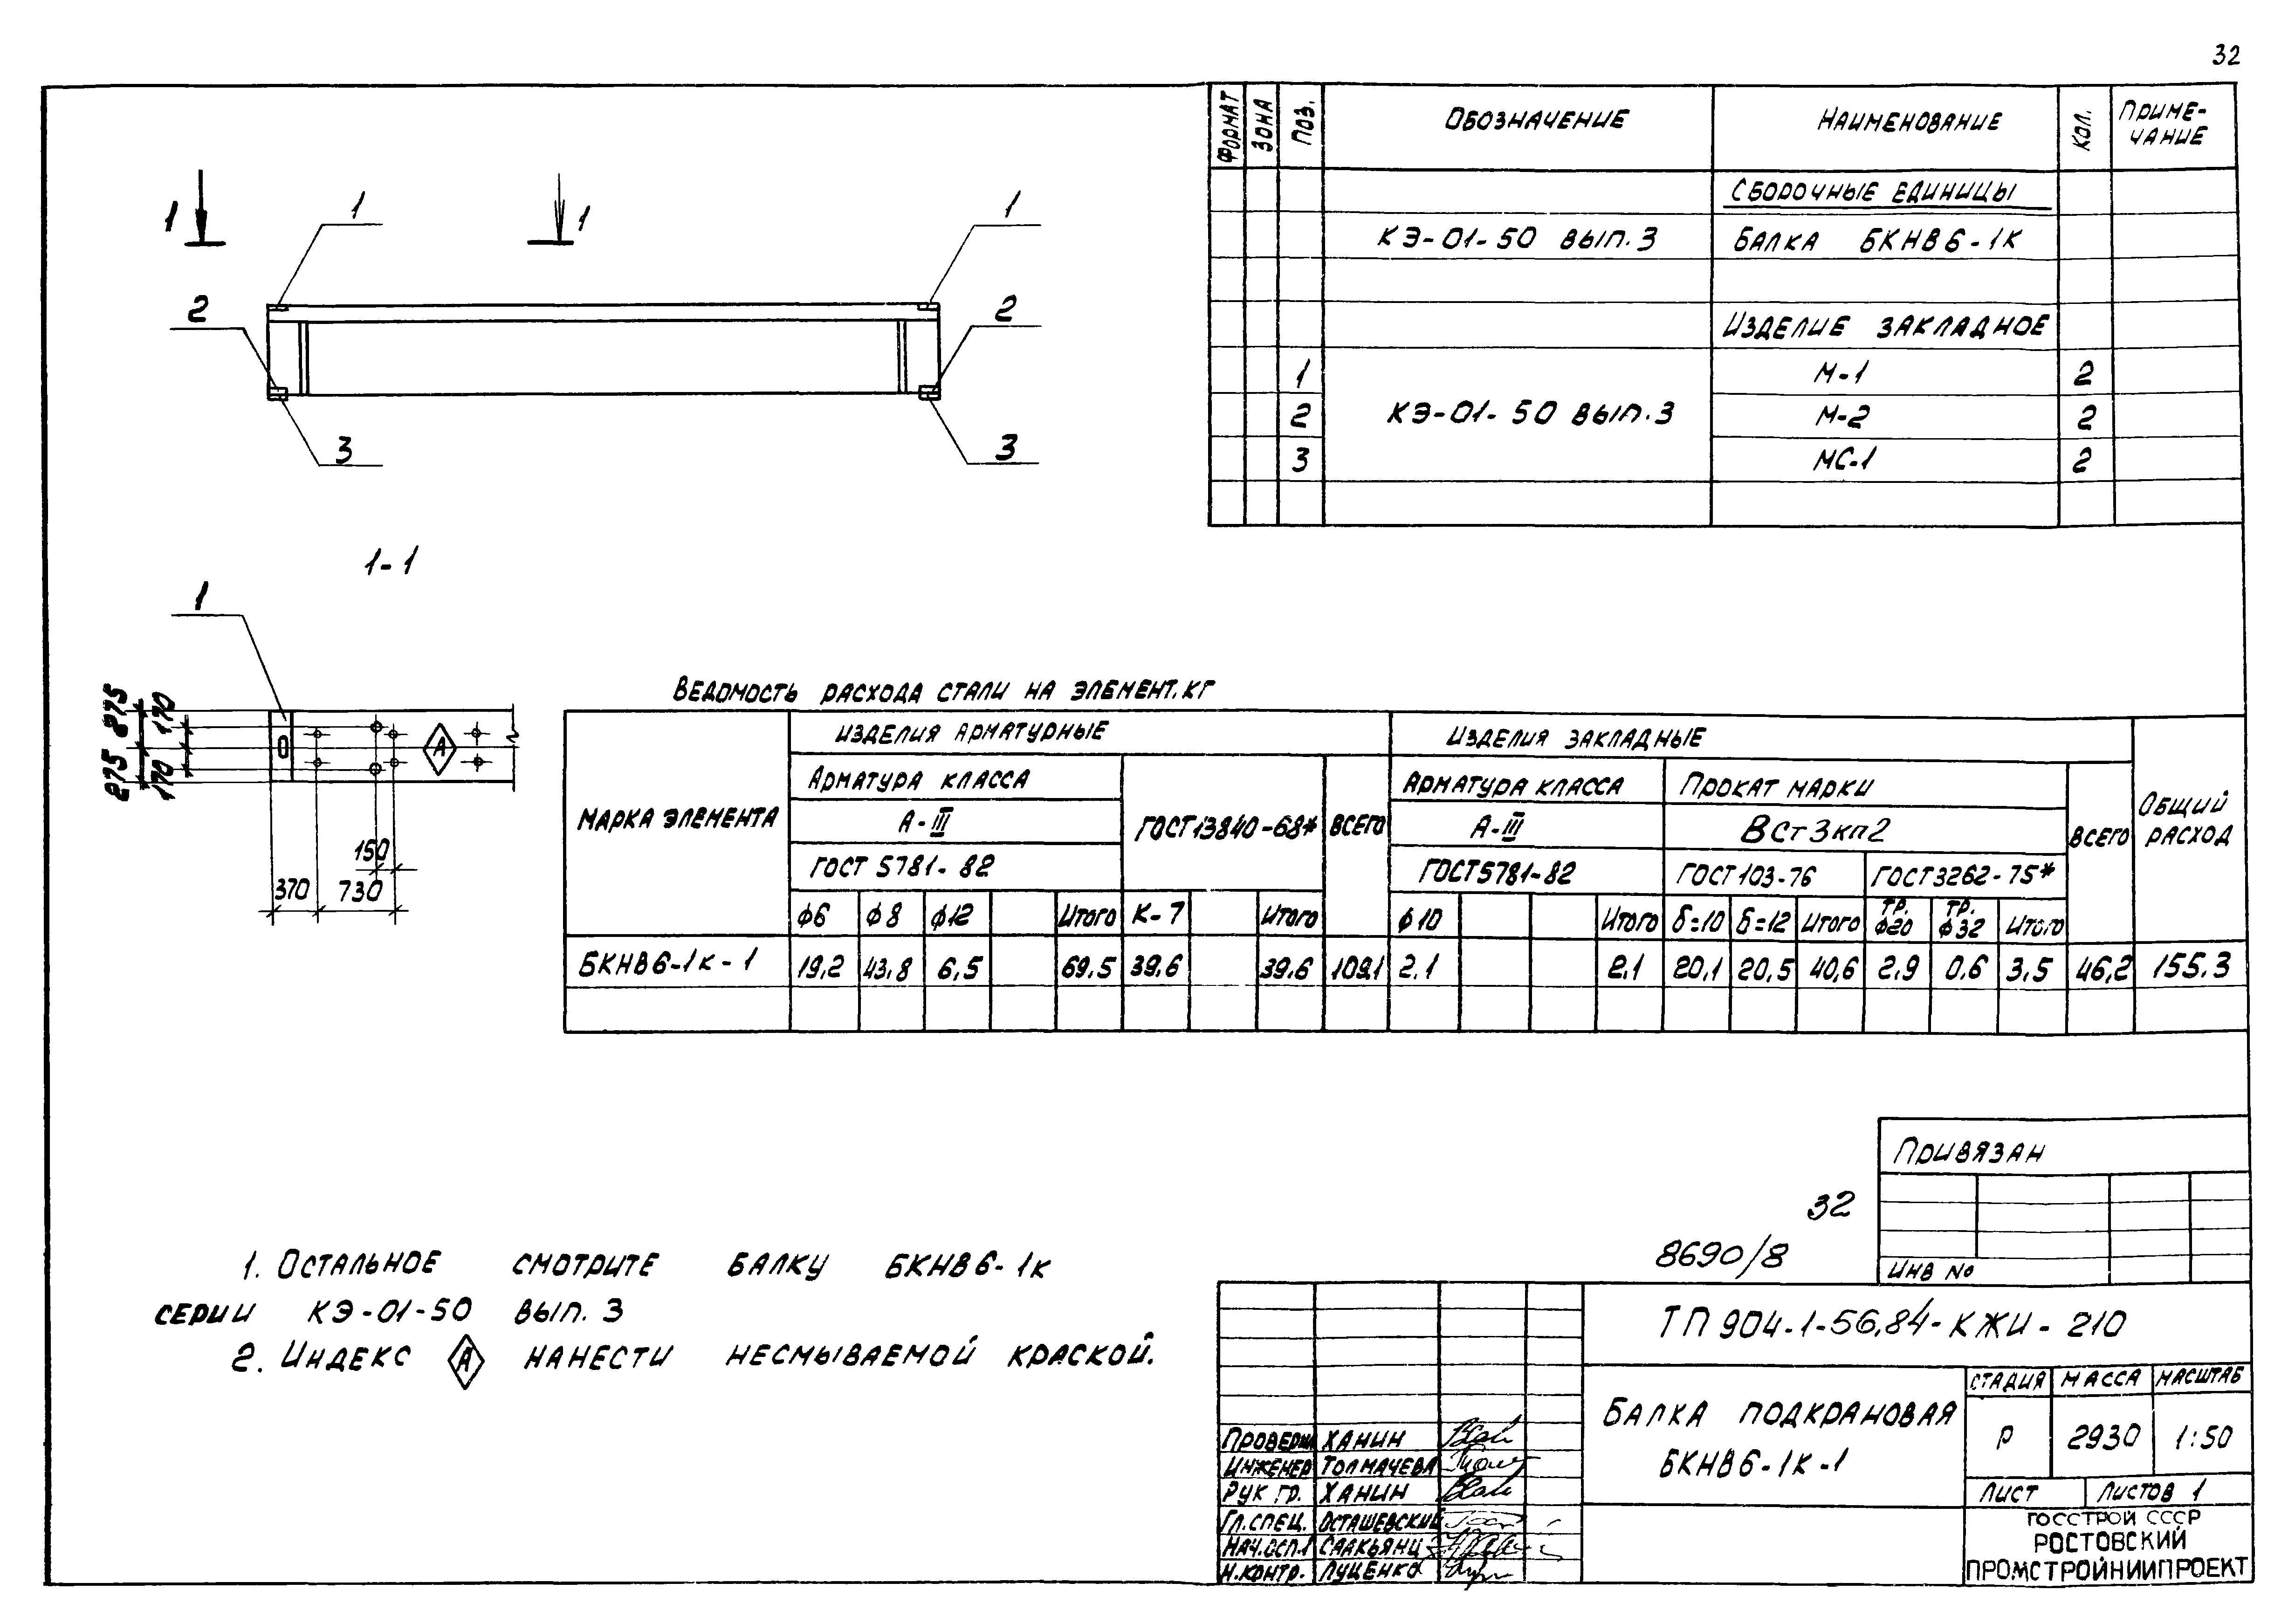 32
ФОРМАТ ЗОНА ПОЗ. ОБОЗНАЧЕНИЕ НАИМЕНОВАНИЕ КОЛ. ПРИМЕ-
ЧАНИЕ
СБОРОЧНЫЕ ЕДИНИЦЫ
КЭ-01-50 ВЫП.3 БАЛКА БКНВ6-1К
ИЗДЕЛИЕ ЗАКЛАДНОЕ
1 М-1 2
2 КЭ-01-50 ВЫП.3 М-2 2
3 МС-1 2
1 1 1 1
2 2
3 3
1-1
1
275 275
170 170
150
370 730
А
ВЕДОМОСТЬ РАСХОДА СТАЛИ НА ЭЛЕМЕНТ, КГ
МАРКА ЭЛЕМЕНТА ИЗДЕЛИЯ АРМАТУРНЫЕ ИЗДЕЛИЯ ЗАКЛАДНЫЕ ОБЩИЙ
РАСХОД
АРМАТУРА КЛАССА ГОСТ13840-68* ВСЕГО АРМАТУРА КЛАССА ПРОКАТ МАРКИ ВСЕГО
А-III А-III ВСт3кп2
ГОСТ 5781-82 ГОСТ5781-82 ГОСТ103-76 ГОСТ3262-75*
ф6 ф8 ф12 Итого К-7 Итого ф10 Итого δ=10 δ=12 Итого ТР. ф20 ТР. ф32 Итого
БКНВ6-1к-1 19,2 43,8 6,5 69.5 39,6 39.6 109,1 2.1 2,1 20,1 20,5 40,6 2,9 0,6 3,5 46,2 155.3
1. ОСТАЛЬНОЕ СМОТРИТЕ БАЛКУ БКНВ6-1К
СЕРИИ КЭ-01-50 ВЫП. 3
2. ИНДЕКС А НАНЕСТИ НЕСМЫВАЕМОЙ КРАСКОЙ.
ПРИВЯЗАН
ИНВ №
32
8690/8
ТП 904-1-56.84-КЖИ-210
БАЛКА ПОДКРАНОВАЯ
БКНВ6-1К-1
СТАДИЯ МАССА МАСШТАБ
Р 2930 1:50
ЛИСТ ЛИСТОВ 1
ГОССТРОЙ СССР
РОСТОВСКИЙ
ПРОМСТРОЙНИИПРОЕКТ
ПРОВЕРИЛ ХАНИН
ИНЖЕНЕР ТОЛМАЧЕВА
РУК ГР. ХАНИН
ГЛ.СПЕЦ. ОСТАШЕВСКИЙ
НАЧ.ОСП.1 СААКЬЯНЦ
Н.КОНТР. ЛУЦЕНКО